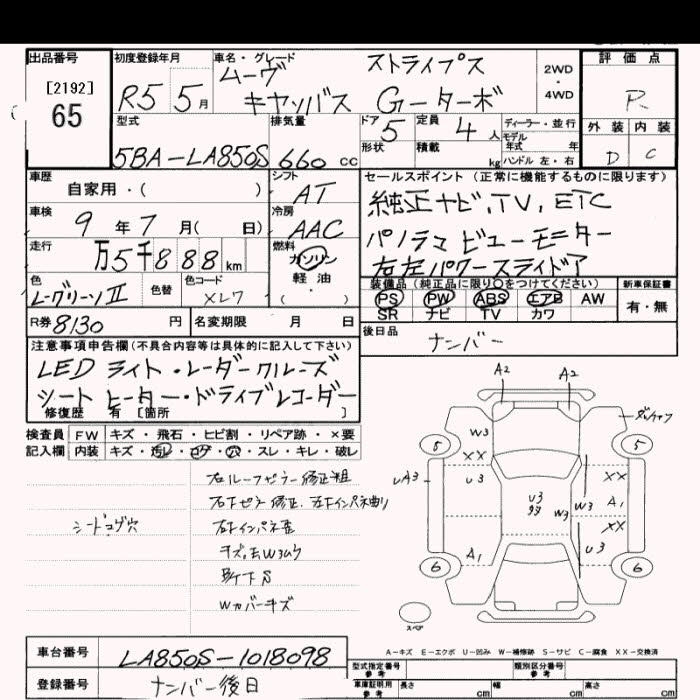 出品番号
[2192]
65
初度登録年月
R5 5月
車名・グレード
ムーヴ ストライプス
キャンバス Gーターボ
2WD
・
4WD
評価点
R
外装 内装
D C
型式
5BA-LA850S
排気量
660 cc
ドア 5
形状
定員 4人
積載 kg
ディーラー・並行
モデル
年式 年
ハンドル 左・右
車歴
自家用・( )
車検 9年7月( 日)
走行 万5千888km
色 色替 色コード
XL7
シフト
AT
冷房
AAC
燃料
ガソリン
軽油
( ・ )
セールスポイント (正常に機能するものに限ります)
純正ナビ、TV、ETC
パノラマビューモニター
右左パワースライドア
装備品 (純正品に限り〇をつけてください)
PS PW ABS エアB AW
SR ナビ TV カワ
新車保証書
有・無
R券 8130円
名変期限 月 日
後日品
ナンバー
注意事項申告欄(不具合内容等は具体的に記入して下さい)
LEDライト・レーダークルーズ
シートヒーター・ドライブレコーダー
修復歴 有 [箇所 ]
検査員 FW キズ・飛石・ヒビ割・リペア跡・×要
記入欄 内装 キズ・汚レ・コゲ・穴・スレ・キレ・破レ
右ルーフピラー修正粗
シートコゲ穴
右インパネ歪
B/F下S
Wカバーキズ
A2 A2
W3
XX
U3
UA3
A1
U3
W3 W3
XX
A1
XX
U3
5 5
6 6
スペア
A-キズ E-エクボ U-凹み W-補修跡 S-サビ C-腐食 XX-交換済
車台番号 LA850S-1018098
登録番号 ナンバー後日
型式指定番号 参考
類別区分番号 参考
車庫証明用 参考 長さ cm 幅 cm 高さ cm